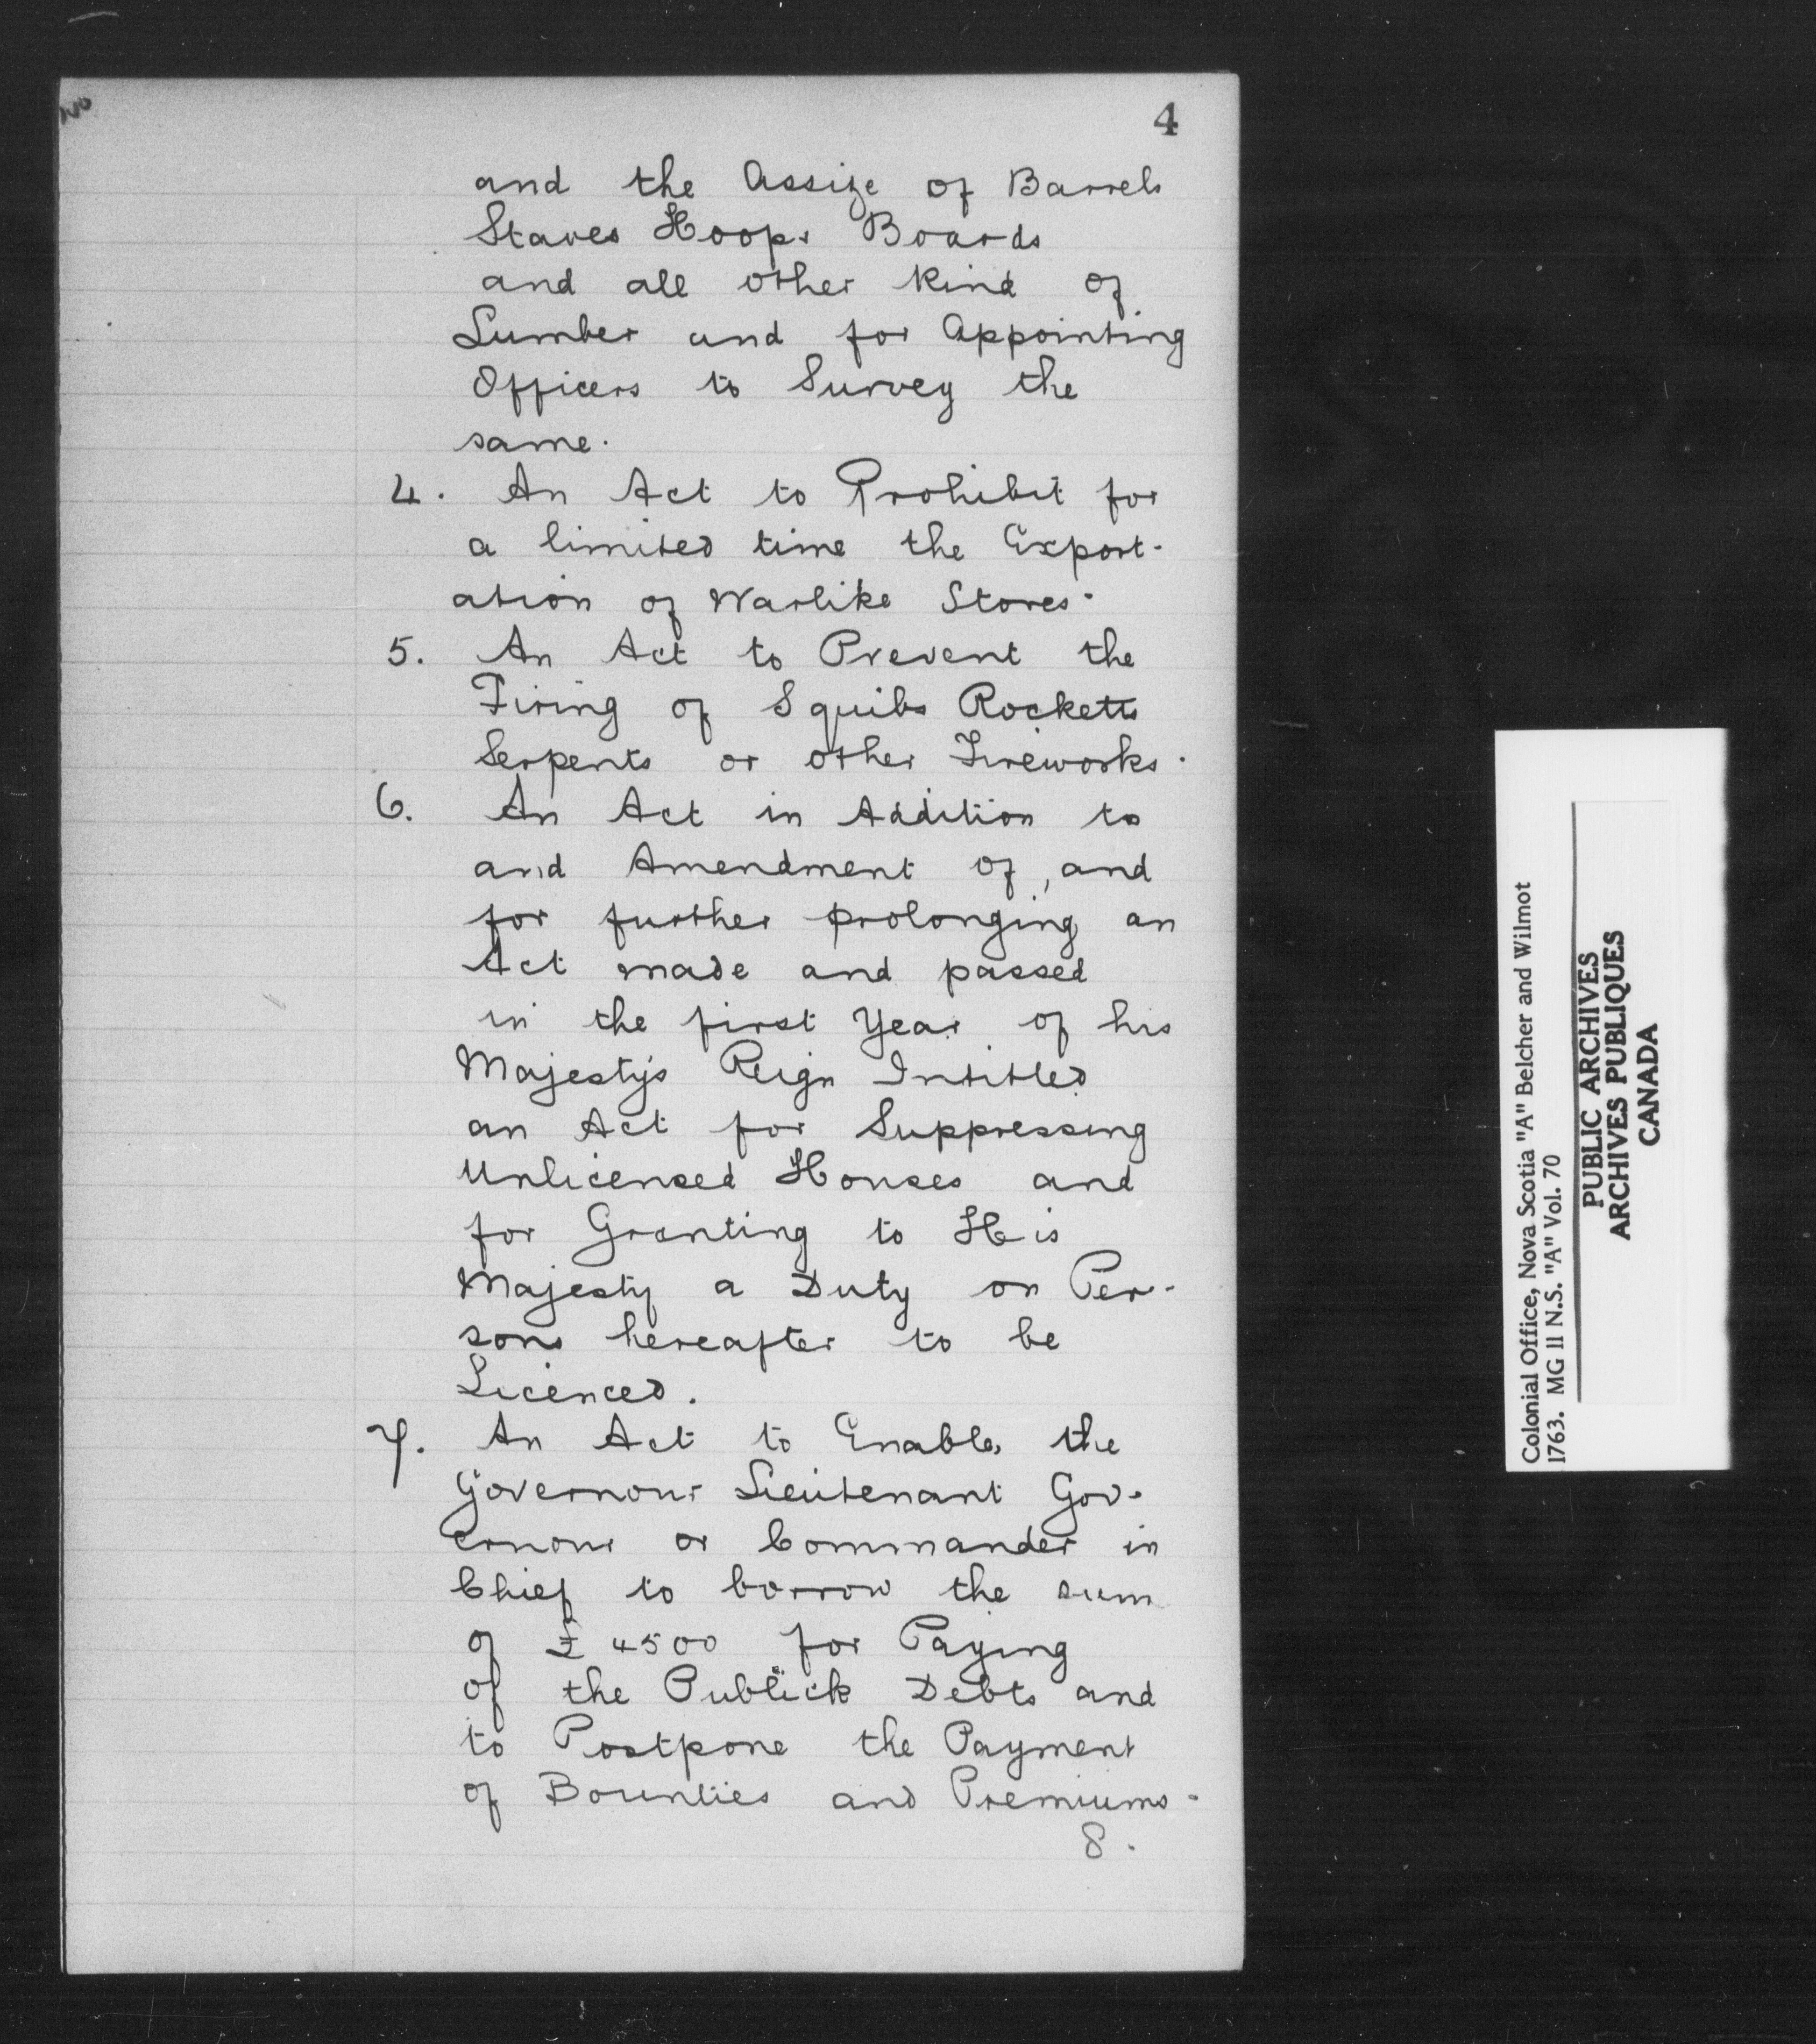 4
and the Assize of Barrels
Staves Hoops Boards
and all other kind of
Lumber and for Appointing
Officers to Survey the
same.
4. An Act to Prohibit for
a limited time the Export-
ation of Warlike Stores.
5. An Act to Prevent the
Firing of Squibs Rocketts
Serpents or other Fireworks.
6. An Act in Addition to
and Amendment of, and
for further prolonging an
Act made and passed
in the first Year of his
Majesty's Reign Intitled
an Act for Suppressing
Unlicensed Houses and
for Granting to His
Majesty a Duty on Per-
sons hereafter to be
Licenced.
7. An Act to Enable, the
Governour Lieutenant Gov-
ernour or Commander in
Chief to borrow the sum
of £4500 for Paying
of the Publick Debts and
to Postpone the Payment
of Bounties and Premiums.
8.
Colonial Office, Nova Scotia "A" Belcher and Wilmot
1763. MG 11 N.S. "A" Vol. 70
PUBLIC ARCHIVES
ARCHIVES PUBLIQUES
CANADA